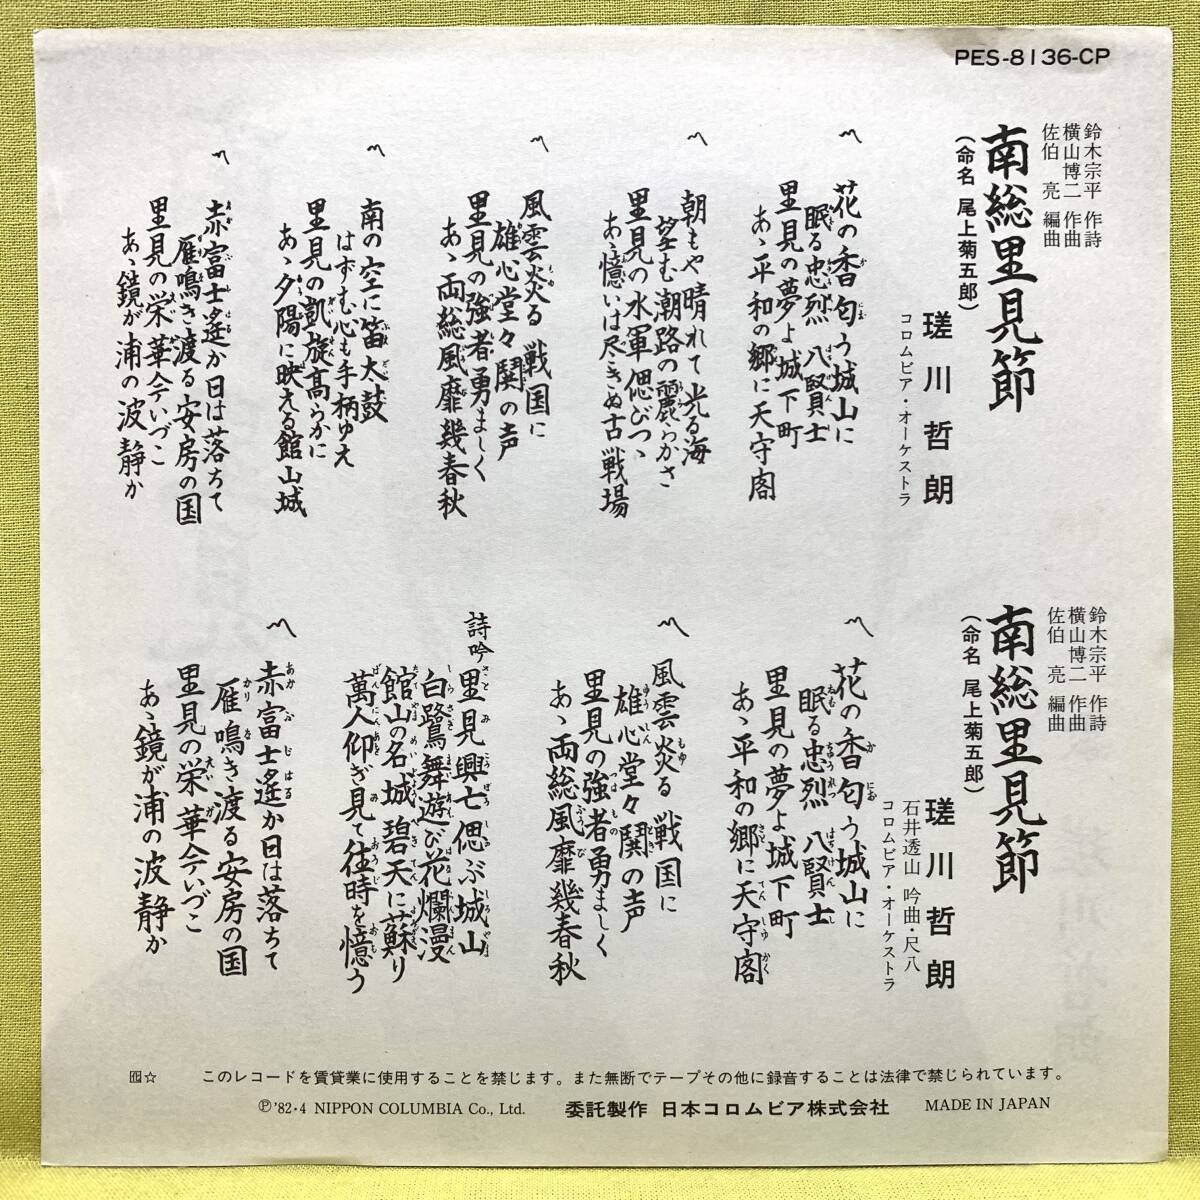 PES-8136-CP
鈴木宗平 作詩
横山博二 作曲
佐伯 亮 編曲
南総里見節
(命名 尾上菊五郎)
瑳川哲朗
コロムビア・オーケストラ
〽花の香匂う城山に
眠る忠烈 八賢士
里見の夢よ城下町
あゝ平和の郷に天守閣
〽朝もや晴れて光る海
望む潮路の麗らかさ
里見の水軍偲びつゝ
あゝ憶いは尽きぬ古戦場
〽風雲炎る 戦国に
雄心堂々鬨の声
里見の強者勇ましく
あゝ両総風靡幾春秋
〽南の空に笛太鼓
はずむ心も手柄ゆえ
里見の凱旋高らかに
あゝ夕陽に映える館山城
〽赤富士遙か日は落ちて
雁鳴き渡る安房の国
里見の栄華今いづこ
あゝ鏡が浦の波静か
鈴木宗平 作詩
横山博二 作曲
佐伯 亮 編曲
南総里見節
(命名 尾上菊五郎)
瑳川哲朗
石井透山 吟曲・尺八
コロムビア・オーケストラ
〽花の香匂う城山に
眠る忠烈 八賢士
里見の夢よ城下町
あゝ平和の郷に天守閣
〽風雲炎る 戦国に
雄心堂々鬨の声
里見の強者勇ましく
あゝ両総風靡幾春秋
詩吟 里見興亡偲ぶ城山
白鷺舞遊び花爛漫
館山の名城碧天に蘇り
萬人仰ぎ見て往時を憶う
〽赤富士遙か日は落ちて
雁鳴き渡る安房の国
里見の栄華今いづこ
あゝ鏡が浦の波静か
☆ このレコードを賃貸業に使用することを禁じます。また無断でテープその他に録音することは法律で禁じられています。
Ⓟ'82・4 NIPPON COLUMBIA Co., Ltd. 委託製作 日本コロムビア株式会社 MADE IN JAPAN